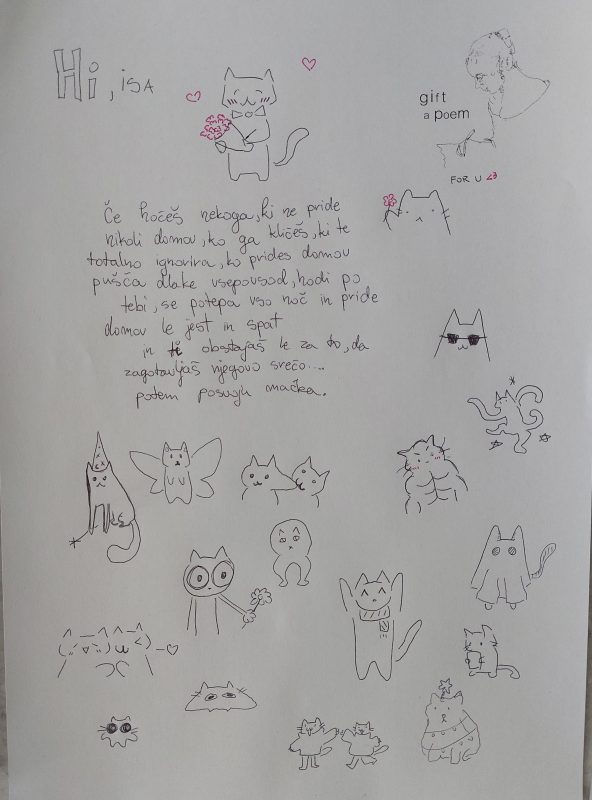 Hi, isa
gift
a poem
FOR U <3
Če hočeš nekoga, ki ne pride
nikoli domov, ko ga kličeš, ki te
totalno ignorira, ko prides domov
pušča dlake vsepovsod, hodi po
tebi, se potepa vso noč in pride
domov le jest in spat
in ti obstajaš le za to, da
zagotavljaš njegovo srečo....
potem posvoji mačka.